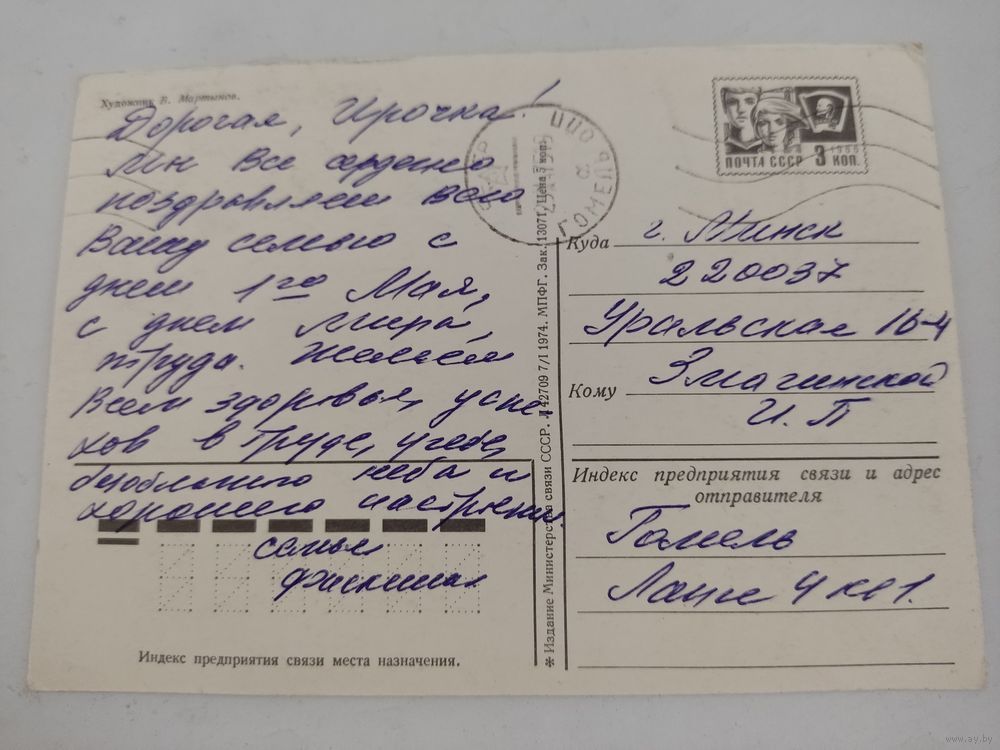 Художник В. Мартынов.
Дорогая, Ирочка!
Мы все сердечно
поздравляем всю
Вашу семью с
днем 1го Мая,
с днем мира,
труда. Желаем
Всем здоровья, успе-
хов в труде, учебе,
безоблачного неба и
хорошего настроения.
семья
Индекс предприятия связи места назначения.
✻ Издание Министерства связи СССР. 42709 7/I 1974. МПФГ. Зак. 13071. Цена 5 коп.
ГОМЕЛЬ
ПОЧТА СССР 3 КОП.
1966
Куда г. Минск
220037
Уральская 16-4
Кому Змагинской
И. П
Индекс предприятия связи и адрес
отправителя
Гомель
Ланге 4 кв 1.
www.ay.by